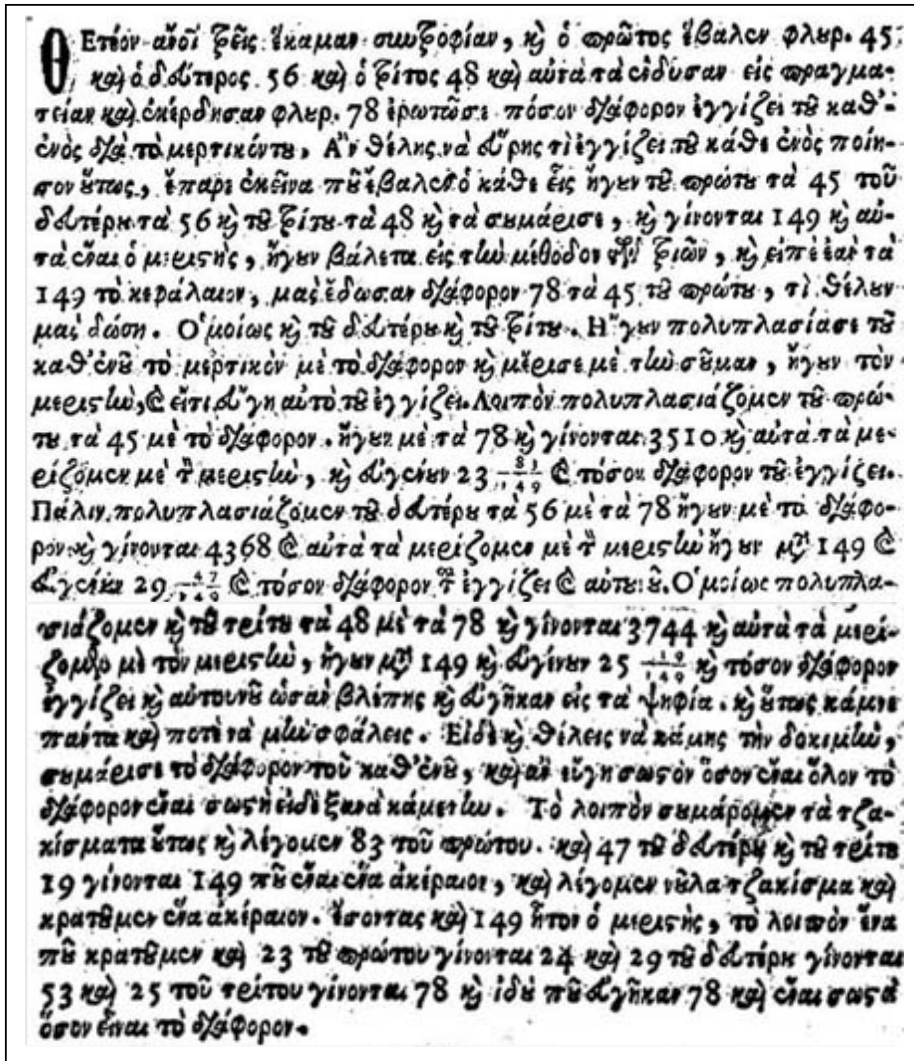 ΘΕτέον αὐτοὶ τρεῖς ἔκαμαν συντροφίαν, καὶ ὁ πρῶτος ἔβαλεν φλυρ. 45
καὶ ὁ δεύτερος 56 καὶ ὁ τρίτος 48 καὶ αὐτὰ τὰ ἐδύσαν εἰς πραγμα-
τείαν καὶ ἐκέρδησαν φλυρ. 78 ἐρωτῶσι πόσον διάφορον ἐγγίζει τοῦ καθ'
ἑνὸς διὰ τὸ μερτικόντου, Ἂν θέλῃς νὰ εὕρῃς τὶ ἐγγίζει τοῦ κάθε ἑνὸς ποίη-
σον οὕτως, ἔπαρε ἐκεῖνα ποῦ ἔβαλεν ὁ κάθε εἷς ἤγουν τοῦ πρώτου τὰ 45 τοῦ
δευτέρου τὰ 56 καὶ τοῦ τρίτου τὰ 48 καὶ τὰ σουμάρισε, καὶ γίνονται 149 καὶ αὐ-
τὰ εἶναι ὁ μεριστὴς, ἤγουν βάλετα εἰς τὴν μέθοδον τῶν τριῶν, καὶ εἰπὲ ἐὰν τὰ
149 τὸ κεφάλαιον, μᾶς ἔδωσαν διάφορον 78 τὰ 45 τοῦ πρώτου, τὶ θέλουν
μᾶς δώσῃ. Ὁμοίως καὶ τοῦ δευτέρου καὶ τοῦ τρίτου. Ἤγουν πολυπλασίασε τοῦ
καθ' ἑνοῦ τὸ μερτικὸν μὲ τὸ διάφορον καὶ μέρισε μὲ τὴν σοῦμαν, ἤγουν τὸν
μεριστὴν, καὶ εἴτι εὔγῃ αὐτὸ τοῦ ἐγγίζει. Λοιπὸν πολυπλασιάζομεν τοῦ πρώ-
του τὰ 45 μὲ τὸ διάφορον. ἤγουν μὲ τὰ 78 καὶ γίνονται 3510 καὶ αὐτὰ τὰ με-
ρίζομεν μὲ τὸν μεριστὴν, καὶ εὐγένουν 23 83/149 καὶ τόσον διάφορον τοῦ ἐγγίζει.
Πάλιν πολυπλασιάζομεν τοῦ δευτέρου τὰ 56 μὲ τὰ 78 ἤγουν μὲ τὸ διάφο-
ρον καὶ γίνονται 4368 καὶ αὐτὰ τὰ μερίζομεν μὲ τὸν μεριστὴν ἤγουν μὲ τὰ 149 καὶ
29 47/149 καὶ τόσον διάφορον τοῦ ἐγγίζει καὶ αὐτουνοῦ. Ὁμοίως πολυπλα-
σιάζομεν καὶ τοῦ τρίτου τὰ 48 μὲ τὰ 78 καὶ γίνονται 3744 καὶ αὐτὰ τὰ μερί-
ζομεν μὲ τὸν μεριστὴν, ἤγουν μὲ τὰ 149 καὶ εὐγένουν 25 19/149 καὶ τόσον διάφορον
ἐγγίζει καὶ αὐτουνοῦ ὡσὰν βλέπῃς καὶ εὐγῆκαν εἰς τὰ ψηφία. καὶ οὕτως κάμνε
πάντα καὶ ποτὲ νὰ μὴν σφάλεις. Εἰδὲ καὶ θέλεις νὰ κάμῃς τὴν δοκιμὴν,
σουμάρισε τὸ διάφορον τοῦ καθ' ἑνοῦ, καὶ ἂν εὔγῃ σωστὸν ὅσον εἶναι ὅλον τὸ
διάφορον εἶναι σωστὴ εἰδὲ ξανὰ κάμετην. Τὸ λοιπὸν σουμάρομεν τὰ τζα-
κίσματα οὕτως καὶ λέγομεν 83 τοῦ πρώτου. καὶ 47 τοῦ δευτέρου καὶ τοῦ τρίτου
19 γίνονται 149 ποῦ εἶναι ἕνα ἀκέραιον, καὶ λέγομεν νοῦλα τζακίσμα καὶ
κρατοῦμεν ἕνα ἀκέραιον. ἔσοντας καὶ 149 ἦτον ὁ μεριστὴς, τὸ λοιπὸν ἕνα
ποῦ κρατοῦμεν καὶ 23 τοῦ πρώτου γίνονται 24 καὶ 29 τοῦ δευτέρου γίνονται
53 καὶ 25 τοῦ τρίτου γίνονται 78 καὶ ἰδοὺ ποῦ εὐγῆκαν 78 καὶ εἶναι σωστὰ
ὅσον εἶναι τὸ διάφορον.